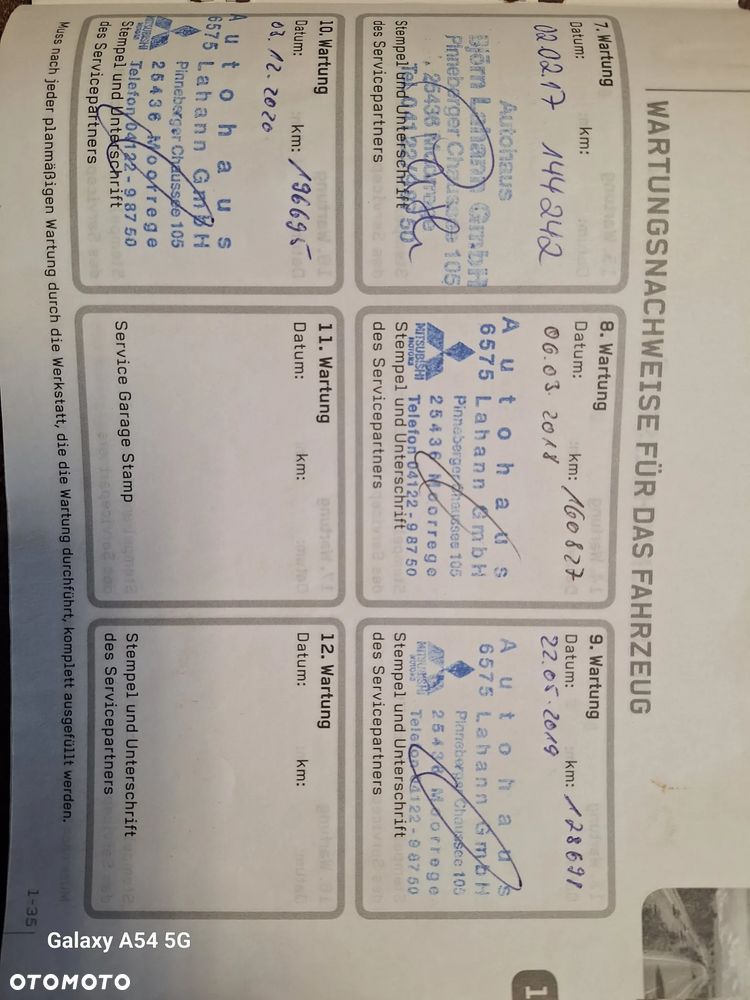 WARTUNGSNACHWEISE FÜR DAS FAHRZEUG
7. Wartung
Datum: km:
02.02.17 144242
Autohaus
Björn Lahann GmbH
Pinneberger Chaussee 105
25436 Moorrege
Tel. 04122-98750
Stempel und Unterschrift
des Servicepartners
8. Wartung
Datum: km:
06.03.2018 160827
Autohaus
6575 Lahann GmbH
Pinneberger Chaussee 105
MITSUBISHI MOTORS 25436 Moorrege
Telefon 04122-98750
Stempel und Unterschrift
des Servicepartners
9. Wartung
Datum: km:
22.05.2019 128698
Autohaus
6575 Lahann GmbH
Pinneberger Chaussee 105
MITSUBISHI MOTORS 25436 Moorrege
Telefon 04122-98750
Stempel und Unterschrift
des Servicepartners
10. Wartung
Datum: km:
03.12.2020 196695
Autohaus
6575 Lahann GmbH
Pinneberger Chaussee 105
MITSUBISHI MOTORS 25436 Moorrege
Telefon 04122-98750
Stempel und Unterschrift
des Servicepartners
11. Wartung
Datum: km:
Service Garage Stamp
12. Wartung
Datum: km:
Stempel und Unterschrift
des Servicepartners
Muss nach jeder planmäßigen Wartung durch die Werkstatt, die die Wartung durchführt, komplett ausgefüllt werden.
1-35
1
Galaxy A54 5G
OTOMOTO